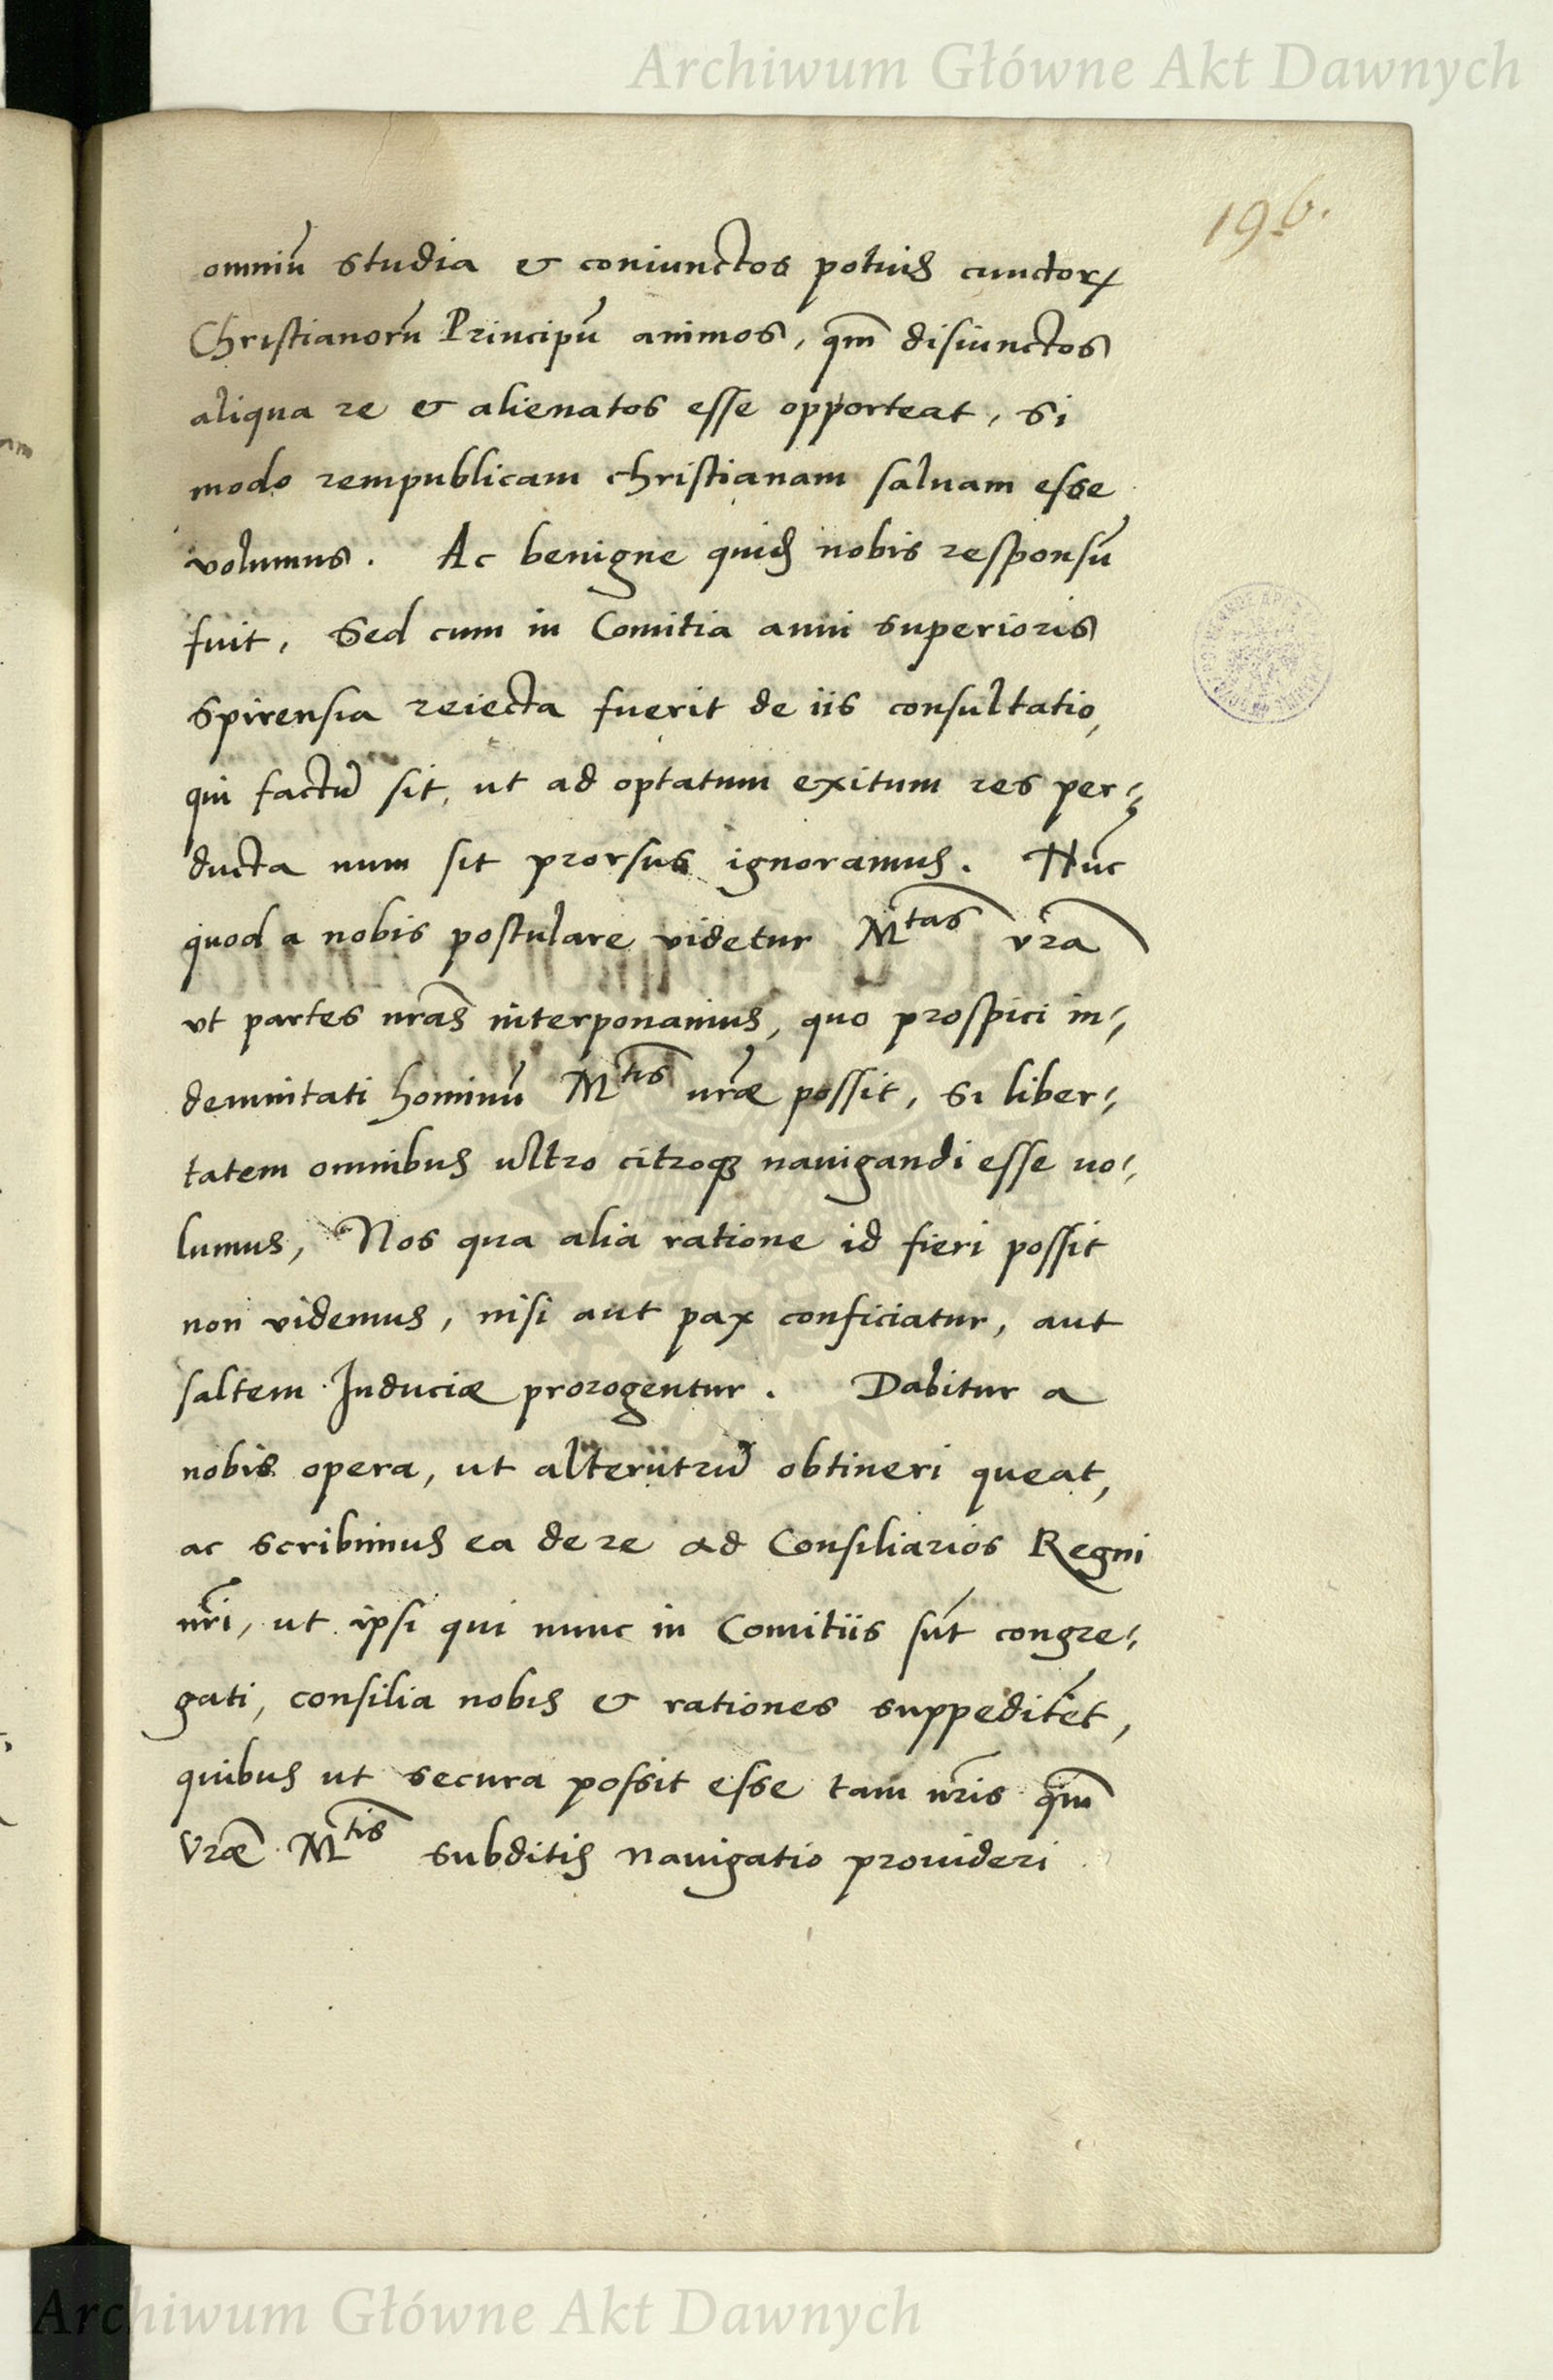 Archiwum Główne Akt Dawnych
196.
omniū studia & coniunctos potius cunctorꝝ
Christianorū Principū animos, qm̄ disiunctos
aliqua re & alienatos esse opporteat, si
modo rempublicam christianam saluam esse
volumus. Ac benigne quid nobis responsū
fuit, Sed cum in Comitia anni superioris
Spirensia reiecta fuerit de iis consultatio,
qui factū sit, ut ad optatum exitum res per⸗
ducta num sit prorsus ignoramus. Nūc
quod a nobis postulare videtur Mtas vr̄a
vt partes nr̄as interponamus, quo prospici in⸗
demnitati hominū Mtis urǣ possit, si liber⸗
tatem omnibus ultro citroqꝫ nauigandi esse uo⸗
lumus, Nos qua alia ratione id fieri possit
non videmus, nisi aut pax conficiatur, aut
saltem Induciæ prorogentur. Dabitur a
nobis opera, ut alterutrū obtineri queat,
ac scribimus ea de re ad Consiliarios Regni
nr̄i, ut ipsi qui nunc in Comitiis sūt congre⸗
gati, consilia nobis & rationes suppeditēt,
quibus ut secura possit esse tam nr̄is qm̄
Vrǣ Mtis subditis nauigatio prouideri
Archiwum Główne Akt Dawnych